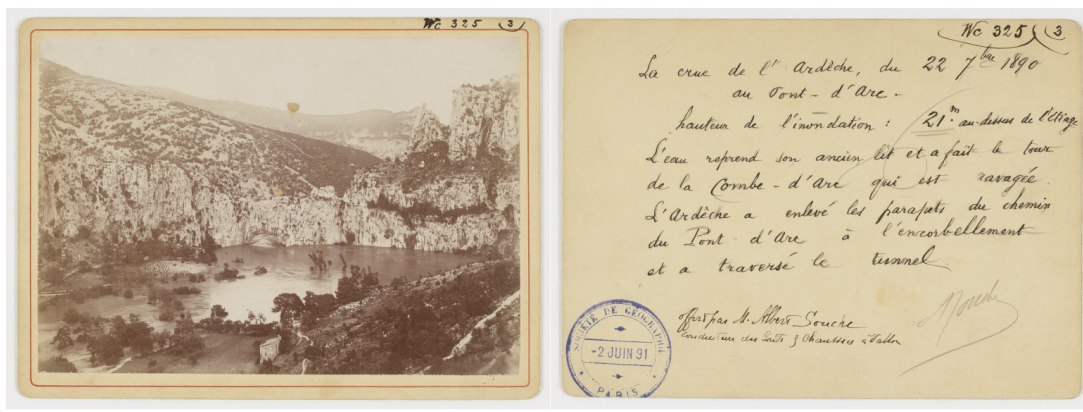 Wc 325 (3)
Wc 325 (3)
La crue de l'Ardèche, du 22 7bre 1890
au Pont-d'Arc-
hauteur de l'inondation : 21m. au-dessus de l'Etiage
L'eau reprend son ancien lit et a fait le tour
de la Combe-d'Arc qui est ravagée.
L'Ardèche a enlevé les parapets du chemin
du Pont-d'Arc à l'encorbellement
et a traversé le tunnel.
Souche
offert par M. Albert Souche
Conducteur des Ponts & Chaussées à Vallon
SOCIÉTÉ DE GÉOGRAPHIE
-2 JUIN 91
PARIS